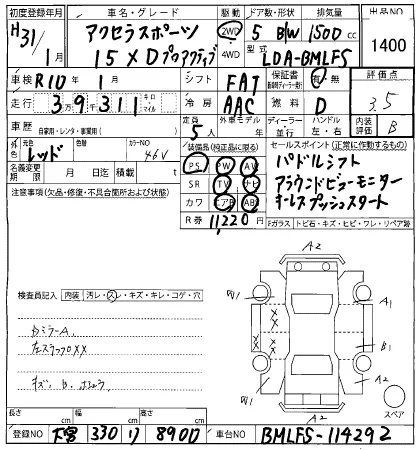 初度登録年月 車名・グレード 駆動 ドア数・形状 排気量 出品NO
H31/1月 アクセラスポーツ 2WD 5 B/W 1500 cc 1400
15 X D プロアクティブ 4WD 型式 LDA-BMLFS
車検 R10年 1月 シフト FAT 保証書 有・無 評価点
走行 39万311 キロ・マイル 冷房 AAC 燃料 D 3.5
車歴 自家用・レンタ・事業用( ) 定員 5人 外車モデル 年 ディーラー・並行 ハンドル 左・右 内装評価 B
元色 レッド 色替 カラーNO 46V 装備品(純正品に限る) セールスポイント(正常に作動するもの)
名義変更期限 月 日迄 積載量 t PS PW AW パドルシフト
注意事項(欠品・修復・不具合箇所および状態) SR TV ナビ アラウンドビューモニター
カワ エアB ABS キーレスプッシュスタート
R券 11,220円 Fガラス トビ石・キズ・ヒビ・ワレ・リペア跡
A2
検査員記入 内装 汚レ・スレ・キズ・キレ・コゲ・穴
W1 A1
BミラーA
XX
XX
B1
W1 A2
A2
スペア
長さ cm 幅 cm 高さ cm
登録NO 大宮 330 リ 8900 車台NO BMLFS-114292